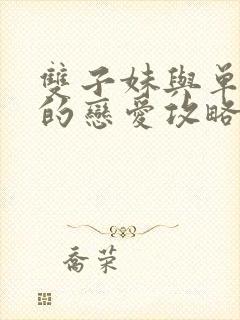 雙子妹與單
的戀愛攻略
喬荣